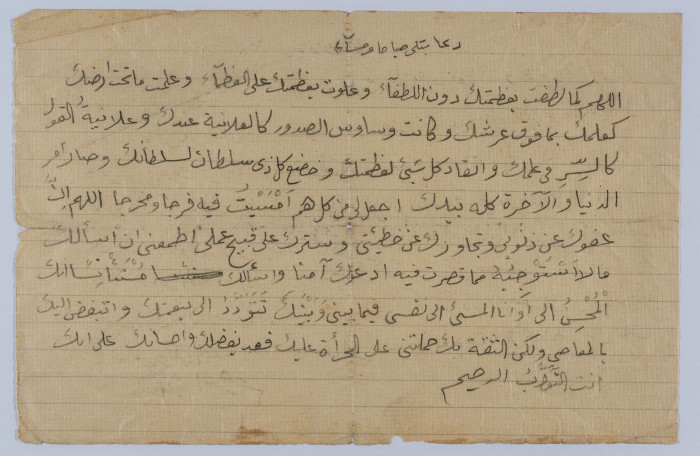 دعا يتلى صباحا ومساًء
اللهم كما لطفت بعظمتك دون اللطفاء وعلوت بعظمتك على العظماء وعلمت ماتحت ارضك
كعلمك بما فوق عرشك وكانت وساوس الصدور كالعلانية عندك وعلانية القول
كالسِّرِ في علمك وانقاد كل شيئ لعظمتك وخضع كل ذى سلطان لسلطانك وصار امر
الدنيا والآخرة كله بيدك اجعل لى من كل هم اَمْسَيْتُ فيه فرجا ومخرجا اللهم اِنَّ
عفوك عن ذنوبي وتجاوزك عن خطيئتى وسترك على قبيح عملى اطمعنى ان اسألك
مالا اَسْتَوْجِبُهُ مما قصرت فيه ادعوك آمنا واسألك مُسْتَأنِسًا انك
الْمُحْسِنُ الى وَاَنَا المسئ الى نفسى فيما بينى وَبَيْنَكَ تَتَوَدَّدُ الى بنعمتك واتبغض اليك
بالمعاصى ولكن الثقة بك حملتنى على الجرأة عليك فعد بفضلك واحسانك على انك
انت التَّوَّابُ الرحيم